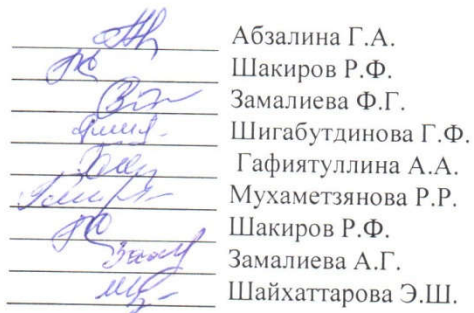 Абзалина Г.А.
Шакиров Р.Ф.
Замалиева Ф.Г.
Шигабутдинова Г.Ф.
Гафиятуллина А.А.
Мухаметзянова Р.Р.
Шакиров Р.Ф.
Замалиева А.Г.
Шайхаттарова Э.Ш.